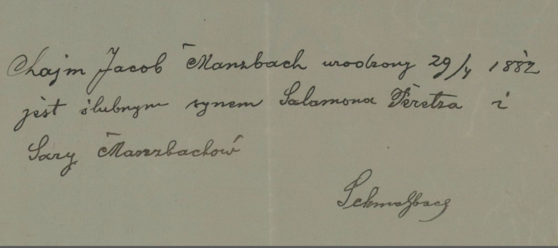 Chajm Jacob Manzbach urodzony 29/4 1882
jest ślubnym synem Salamona Peretza i
Sary Manzbachów